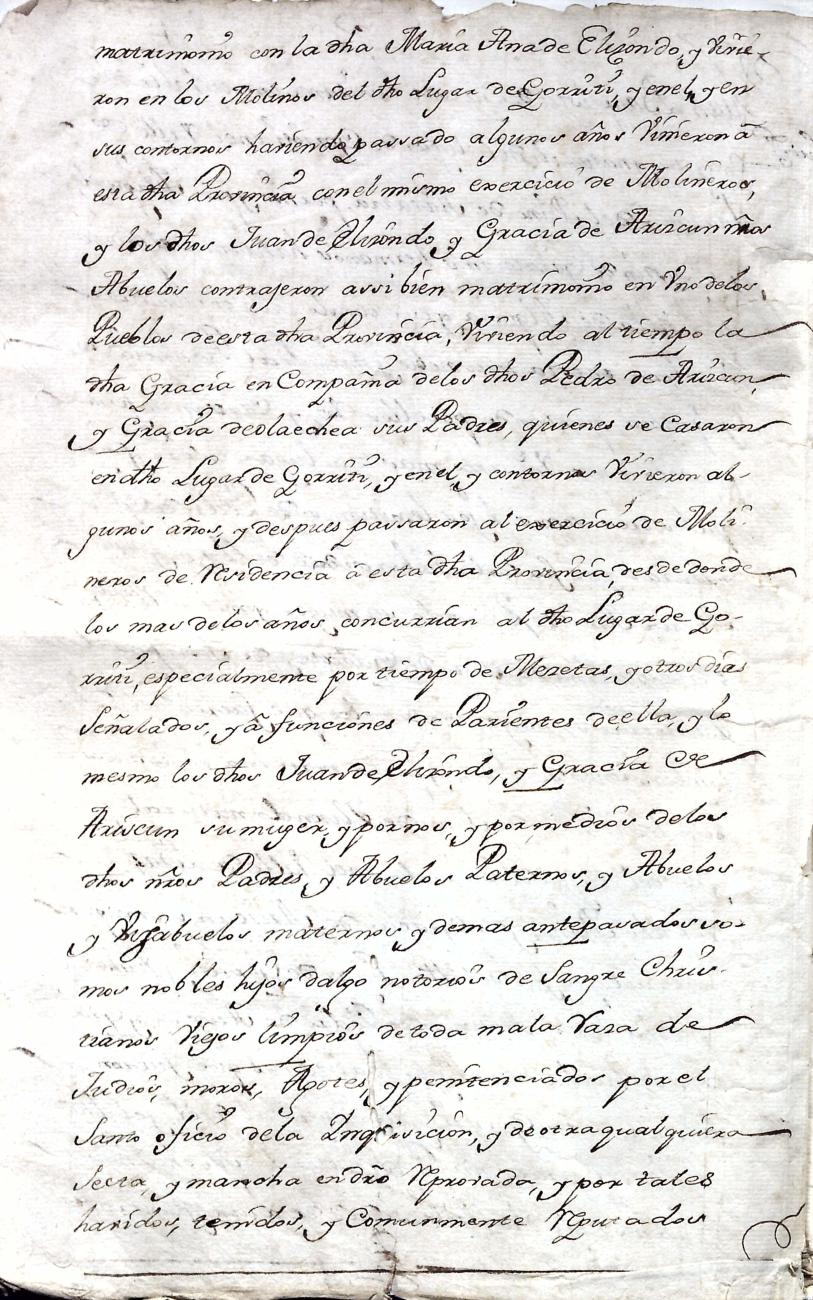 matrimonio con la dha Maria Ana de Elizondo, y vivie-
ron en los Molinos del dho Lugar de Gorriti, y en el, y en
sus contornos haviendo passado algunos años vinieron â
esta dha Provincia con el mismo exercicio de Molineros,
y los dhos Juan de Elizondo, y Gracia de Arizcun nros
Abuelos contrajeron assi bien matrimonio en Vno de los
Pueblos de esta dha Provincia, Viviendo al tiempo la
dha Gracia en Compañia de los dhos Pedro de Arizcun,
y Gracia de olaechea sus Padres, quienes se Casaron
en dho Lugar de Gorriti, y en el, y contornos Vivieron al-
gunos años, y despues passaron al exercicio de Moli-
neros de Residencia â esta dha Provincia, desde donde
los mas de los años concurrian al dho Lugar de Go-
rriti, especialmente por tiempo de Mezetas, y otros dias
Señalados, y â funciones de Parientes de ella, y lo
mesmo los dhos Juan de Elizondo, y Gracia de
Ariscun su muger, y por nos, y por medio de los
dhos nros Padres, y Abuelos Paternos, y Abuelos
y Visabuelos maternos y demas antepasados so-
mos nobles hijos dalgo notorios de Sangre Chris-
tianos Viejos limpios de toda mala Raza de
Judios, moros, Agotes, y penitenciados por el
Santo oficio de la Inquisicion, y de otra qualquiera
Secta, y mancha en dro Reprovada, y por tales
havidos, tenidos, y Comunmente Reputados